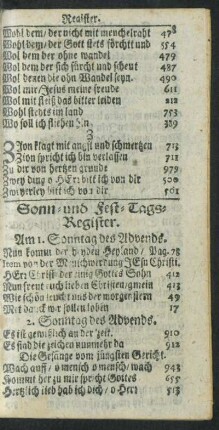 Register.
Wohl dem / der nicht mit meuchelraht 478
Wohl dem / der Gott stets förcht und 554
Wol dem der ohne wandel 479
Wol dem der stets fürcht und scheut 487
Wol denen die ohn Wandel seyn. 490
Wol mir / Jesus meine freude 611
Wol mit fleiß das bitter leiden 212
Wohl stehts im land 753
Wo soll ich fliehen hin 329
Z
Zion klagt mit angst und schmertzen 713
Zion spricht ich bin verlassen 712
Zu dir von hertzen grunde 979
Zwey ding o HErr bitt ich von dir 500
Zweyerley bitt ich von dir 501
Sonn- und Fest-Tags-
Register.
Am 1. Sonntag des Advends.
Nun komm der Heyden Heyland / Pag. 78
von der Menschwerdung JEsu Christi.
HErr Christ der einig Gottes Sohn 412
Nun freut euch lieben Christen gmein 413
Wie schön leucht uns der morgenstern 49
Mit danck wir sollen loben 17
2. Sonntag des Advends.
Es ist gewißlich an der zeit. 910
Es sind die zeichen nunmehr da 912
Die Gesänge vom jüngsten Gericht.
Wach auff / o mensch o mensch / wach 943
Kommt her zu mir spricht Gottes 655
Hertzlich lieb hab ich dich / o Herr 513